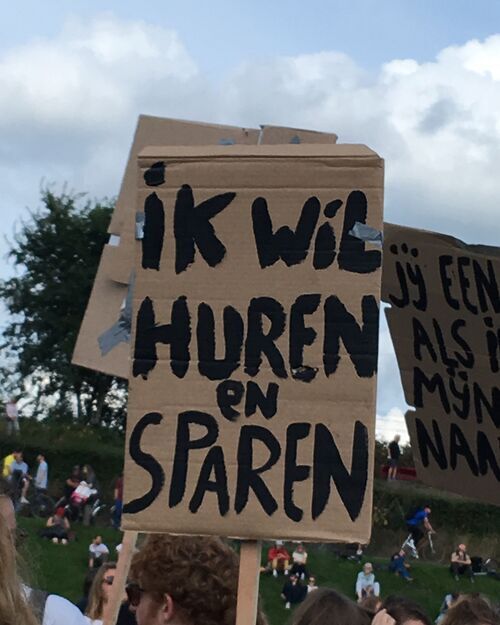 iK WiL
HUREN
en
SPAREN
JŸ EEN
ALS
MŸN